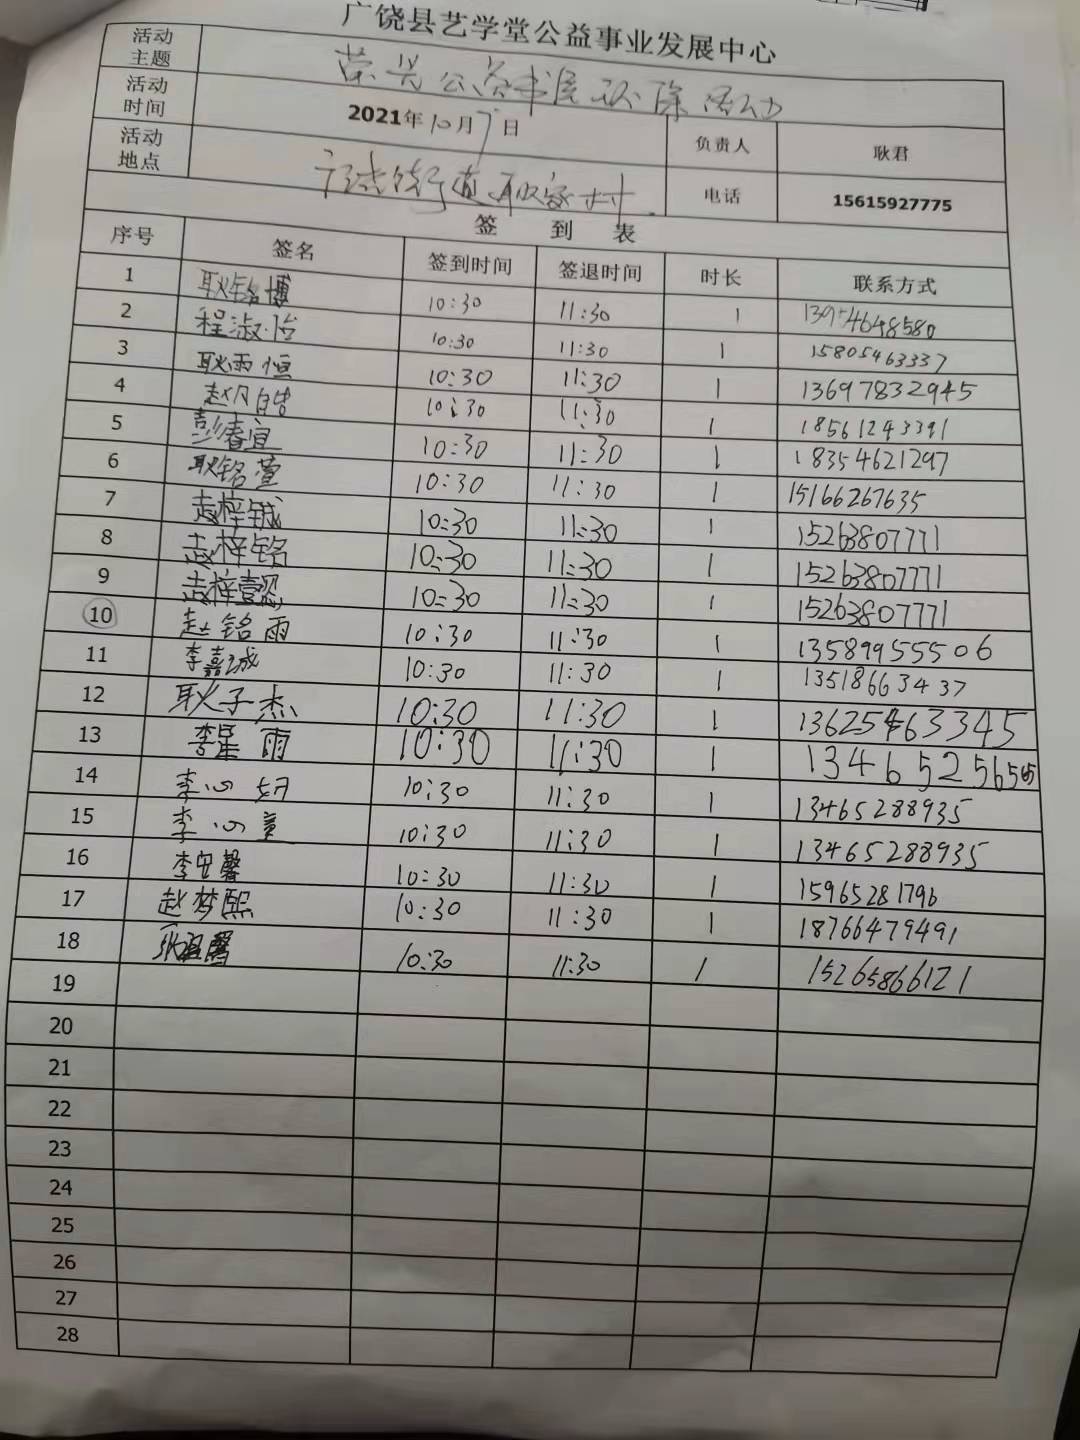 广饶县艺学堂公益事业发展中心
活动主题 荣兴公益书屋 活动
活动时间 2021年10月7日 负责人 耿君
活动地点 街道耿家村. 电话 15615927775
签 到 表
序号 签名 签到时间 签退时间 时长 联系方式
1 耿铭博 10:30 11:30 1 13954648580
2 程淑怡 10:30 11:30 1 15805463337
3 耿雨恒 10:30 11:30 1 13697832945
4 赵 10:30 11:30 1 18561243391
5 彭春宜 10:30 11:30 1 18354621297
6 耿铭萱 10:30 11:30 1 15166267635
7 赵梓铖 10:30 11:30 1 15263807771
8 赵梓铭 10:30 11:30 1 15263807771
9 赵梓懿 10:30 11:30 1 15263807771
10 赵铭雨 10:30 11:30 1 13589955506
11 李嘉诚 10:30 11:30 1 13518663437
12 耿子杰 10:30 11:30 1 13625463345
13 李星雨 10:30 11:30 1
14 李心妍 10:30 11:30 1 13465288935
15 李心童 10:30 11:30 1 13465288935
16 李安馨 10:30 11:30 1 15965281796
17 赵梦熙 10:30 11:30 1 18766479491
18 10:30 11:30 1 15265866121
19
20
21
22
23
24
25
26
27
28